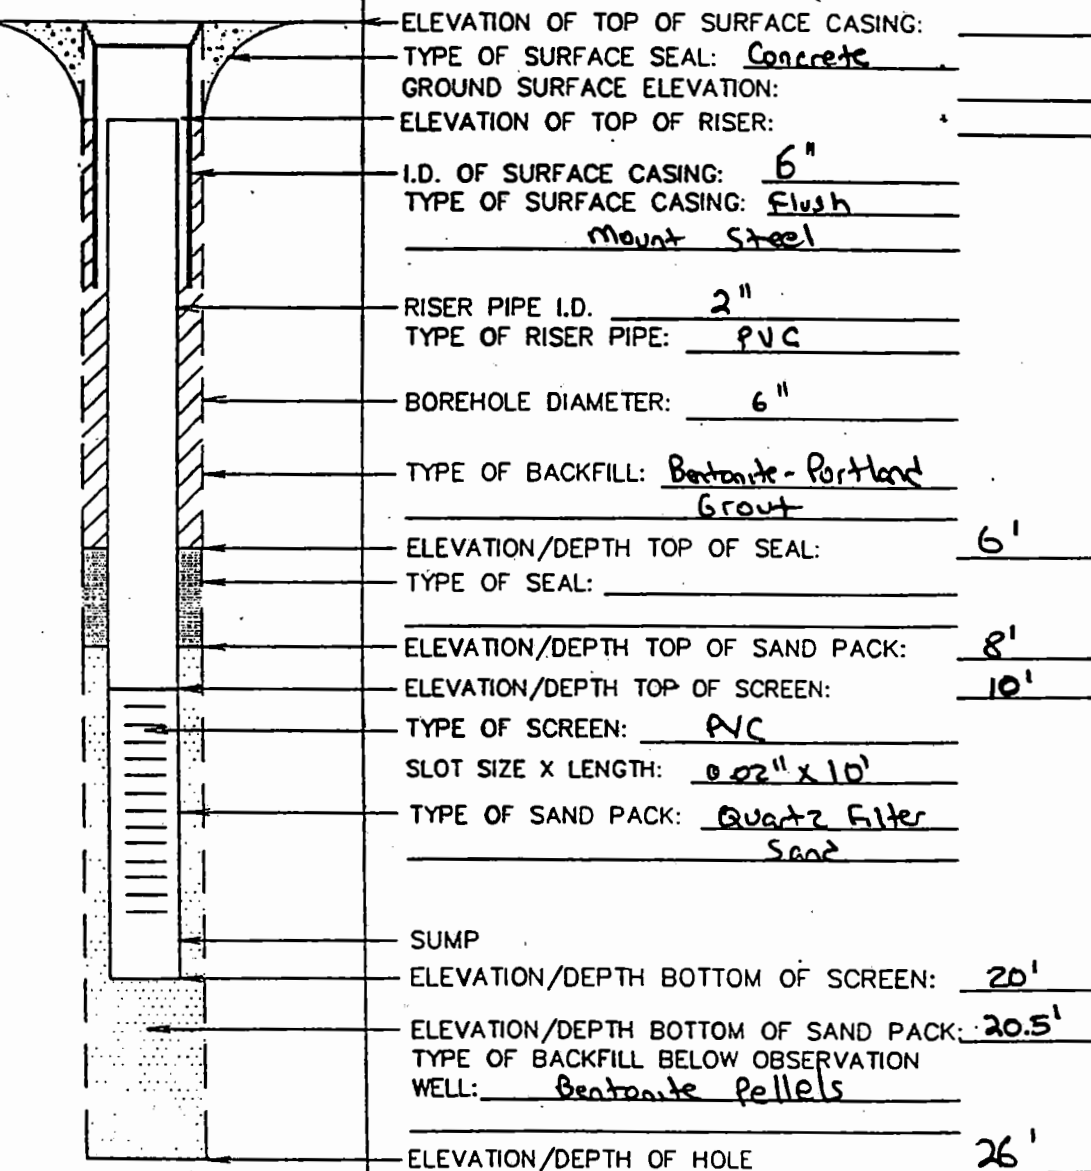 ELEVATION OF TOP OF SURFACE CASING:
TYPE OF SURFACE SEAL: Concrete
GROUND SURFACE ELEVATION:
ELEVATION OF TOP OF RISER:
I.D. OF SURFACE CASING: 6"
TYPE OF SURFACE CASING: Flush
Mount Steel
RISER PIPE I.D. 2"
TYPE OF RISER PIPE: PVC
BOREHOLE DIAMETER: 6"
TYPE OF BACKFILL: Bentonite-Portland
Grout
ELEVATION/DEPTH TOP OF SEAL: 6'
TYPE OF SEAL:
ELEVATION/DEPTH TOP OF SAND PACK: 8'
ELEVATION/DEPTH TOP OF SCREEN: 10'
TYPE OF SCREEN: PVC
SLOT SIZE X LENGTH: 0.02" x 10'
TYPE OF SAND PACK: Quartz Filter
Sand
SUMP
ELEVATION/DEPTH BOTTOM OF SCREEN: 20'
ELEVATION/DEPTH BOTTOM OF SAND PACK: 20.5'
TYPE OF BACKFILL BELOW OBSERVATION
WELL: Bentonite Pellets
ELEVATION/DEPTH OF HOLE 26'